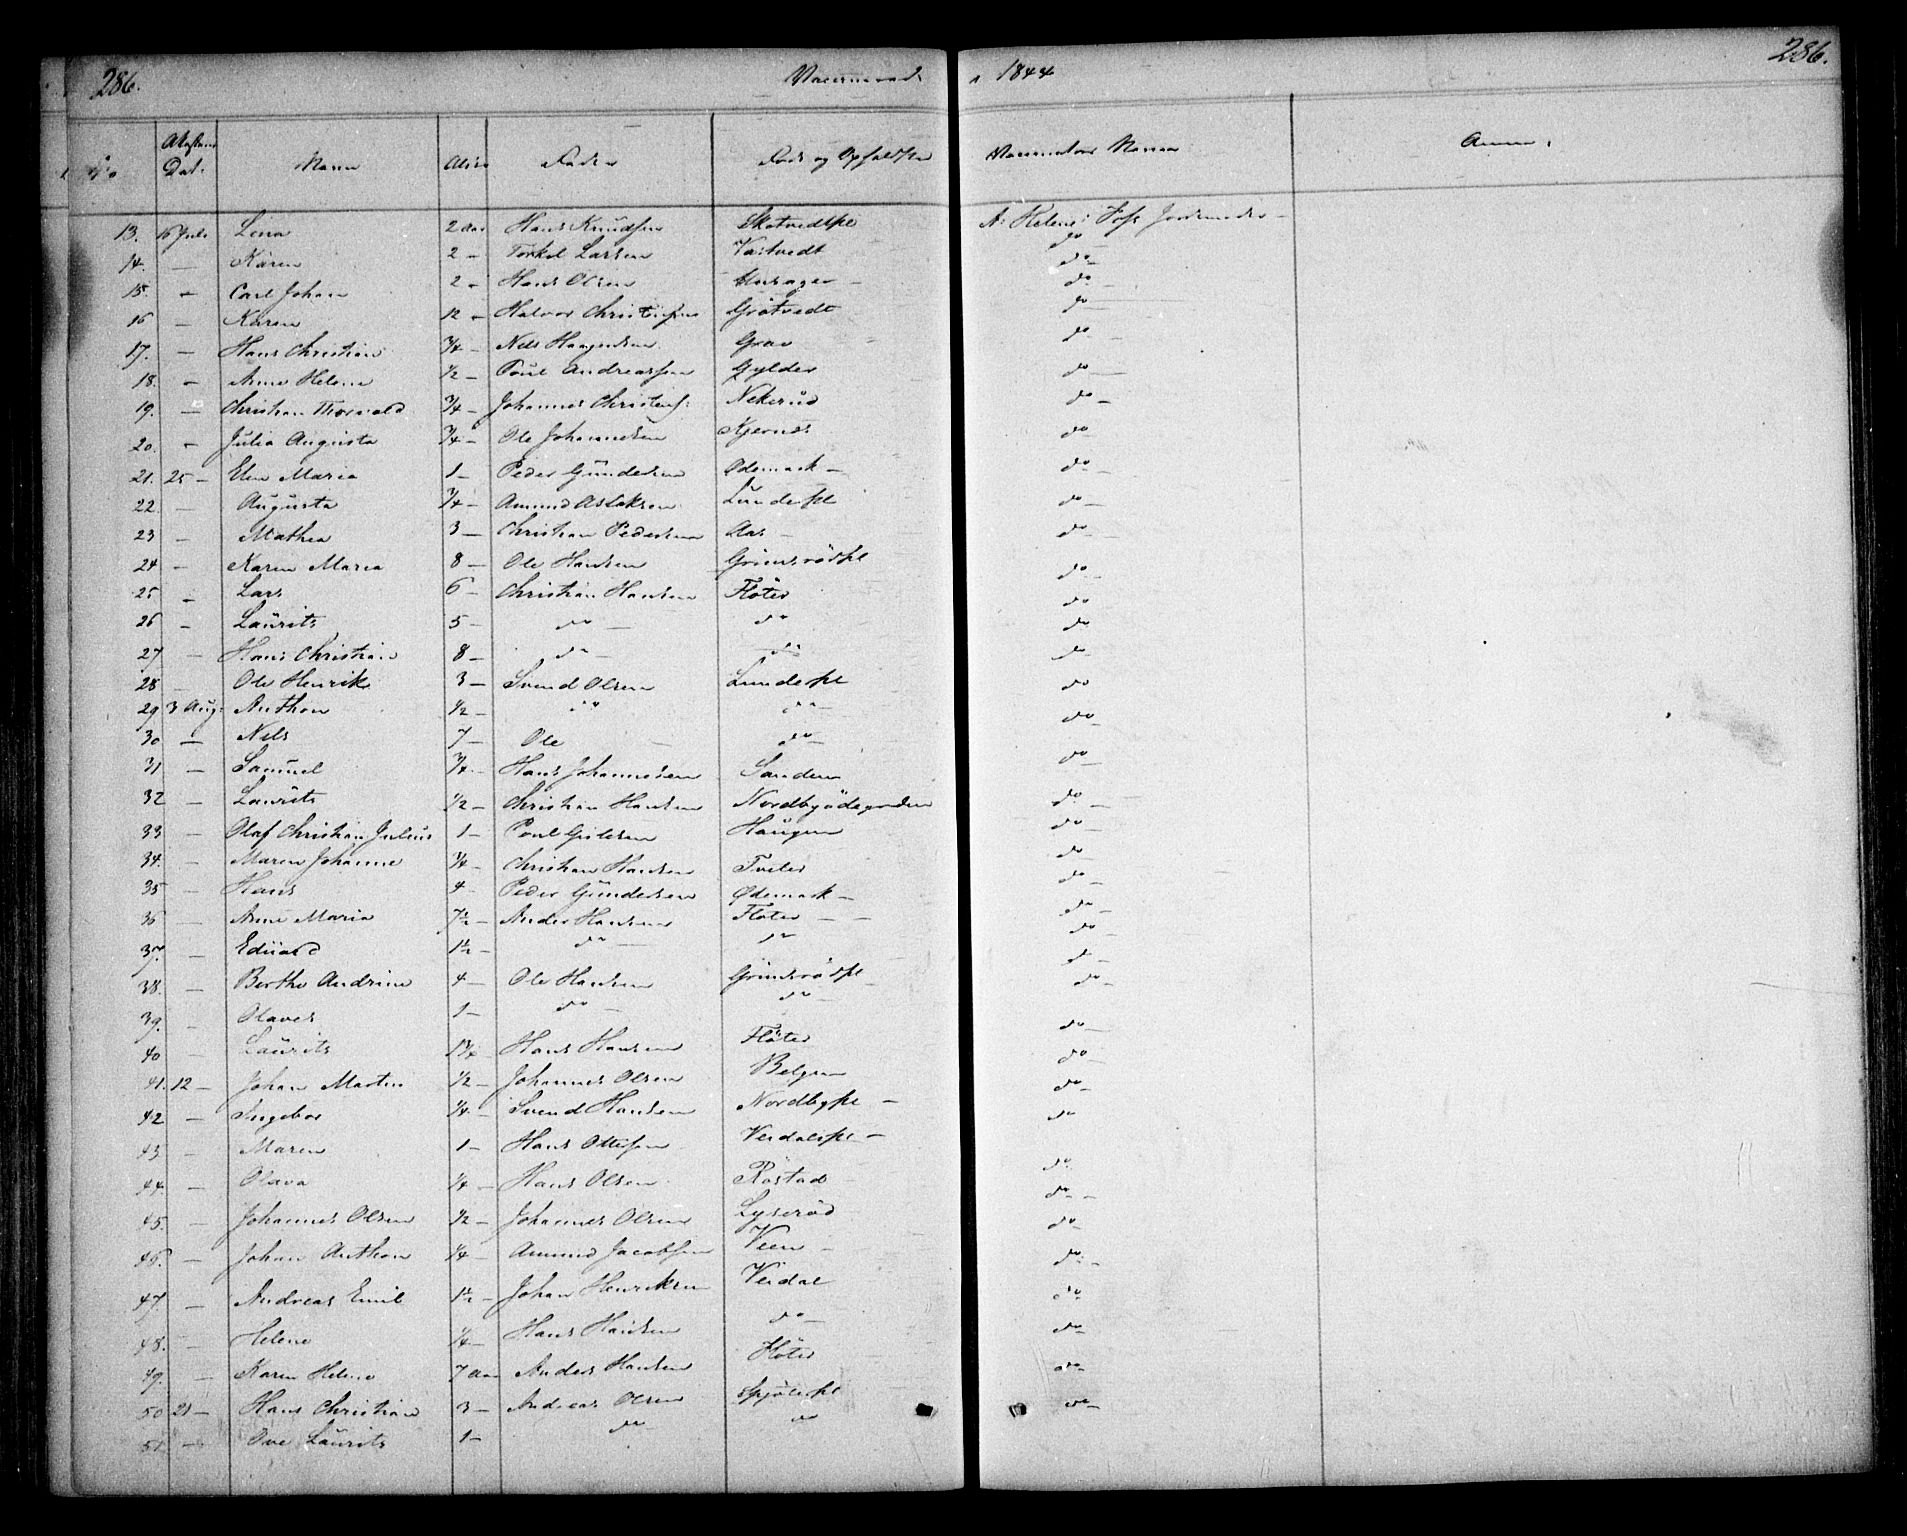 286. Vaccinerede 1844 286.
No Attestens Dat. Navn Alder Fader Føde og Opholdssted Vaccinateurens Navn Anm:
13. 16 Juli Lena 2 Aar Hans Knudsen Skotvedtpl A: Helene Foss Jordemoder
14. — Karen 2 — Torkel Larsen Vastvedt do
15. — Carl Johan 2 — Hans Olsen do
16 — Karen 12 — Halvor Christophersen Gråtvedt do
17. — Hans Christian 3/4 — Nels Haagensen Grav do
18. — Anne Helene 1/2 — Poul Andreassen Gylder do
19. — Christian Thorvald 3/4 — Johannes Christens: Nekerud do
20. — Julia Augusta 3/4 — Ole Johannesen Kjernes do
21. 25 — Elen Maria 1 — Peder Gundersen Ødemark do
22 — Augusta 3/4 — Amund Aslaksen Lundepl do
23 — Mathea 3 — Christian Pedersen Aas do
24 — Karen Maria 8 — Ole Hansen Grimsrödpl do
25 — Lars 6 — Christian Hansen Flöter do
26 — Laurits 5 — do do do
27 — Hans Christian 8 — do do do
28 — Ole Henrik 3 — Svend Olsen Lundepl do
29 3 Aug: Anthon 1/2 — do do do
30 — Nils 7 — Ole — do do
31 — Samuel 3/4 — Hans Johannesen Sanden do
32 — Laurits 1/2 — Christian Hansen Nordbyödegorden do
33 — Olaf Christian Julius 1 — Poul Gulesen Haugen do
34. — Maren Johanne 3/4 — Christian Hansen Tveter do
35 — Hans 4 — Peder Gundersen Ødemark do
36 — Anne Maria 7 1/2 — Anders Hansen Flöter do
37. — Eduard 1 1/2 — do do do
38. — Berthe Andrine 4 — Ole Hansen Grimsrödpl do
39. — Olaves 1 — do do
40 — Laurits 1 3/4 — Hans Hansen Flöter do
41. 12 — Johan Martin 1/2 — Johannes Olsen Belgen do
42 — Ingebor 1/4 — Svend Hansen Nordbypl do
43 — Maren 1 — Hans Ottesen Veidalspl do
44. — Olava 1/4 — Hans Olsen Röstad do
45. — Johannes Olsen 1/2 — Johannes Olsen Lyseröd do
46. — Johan Anthon 1/4 — Amund Jacobsen Veen do
47. — Andreas Emil 1 1/2 — Johan Henriksen Veidal do
48. — Helene 1/4 — Hans Hansen do do
49. — Karen Helene 7 Aar Anders Hansen Flöter do
50 21 — Hans Christian 3 — Andreas Olsen Spjölepl do
51. — Ove Laurits 1 — do do